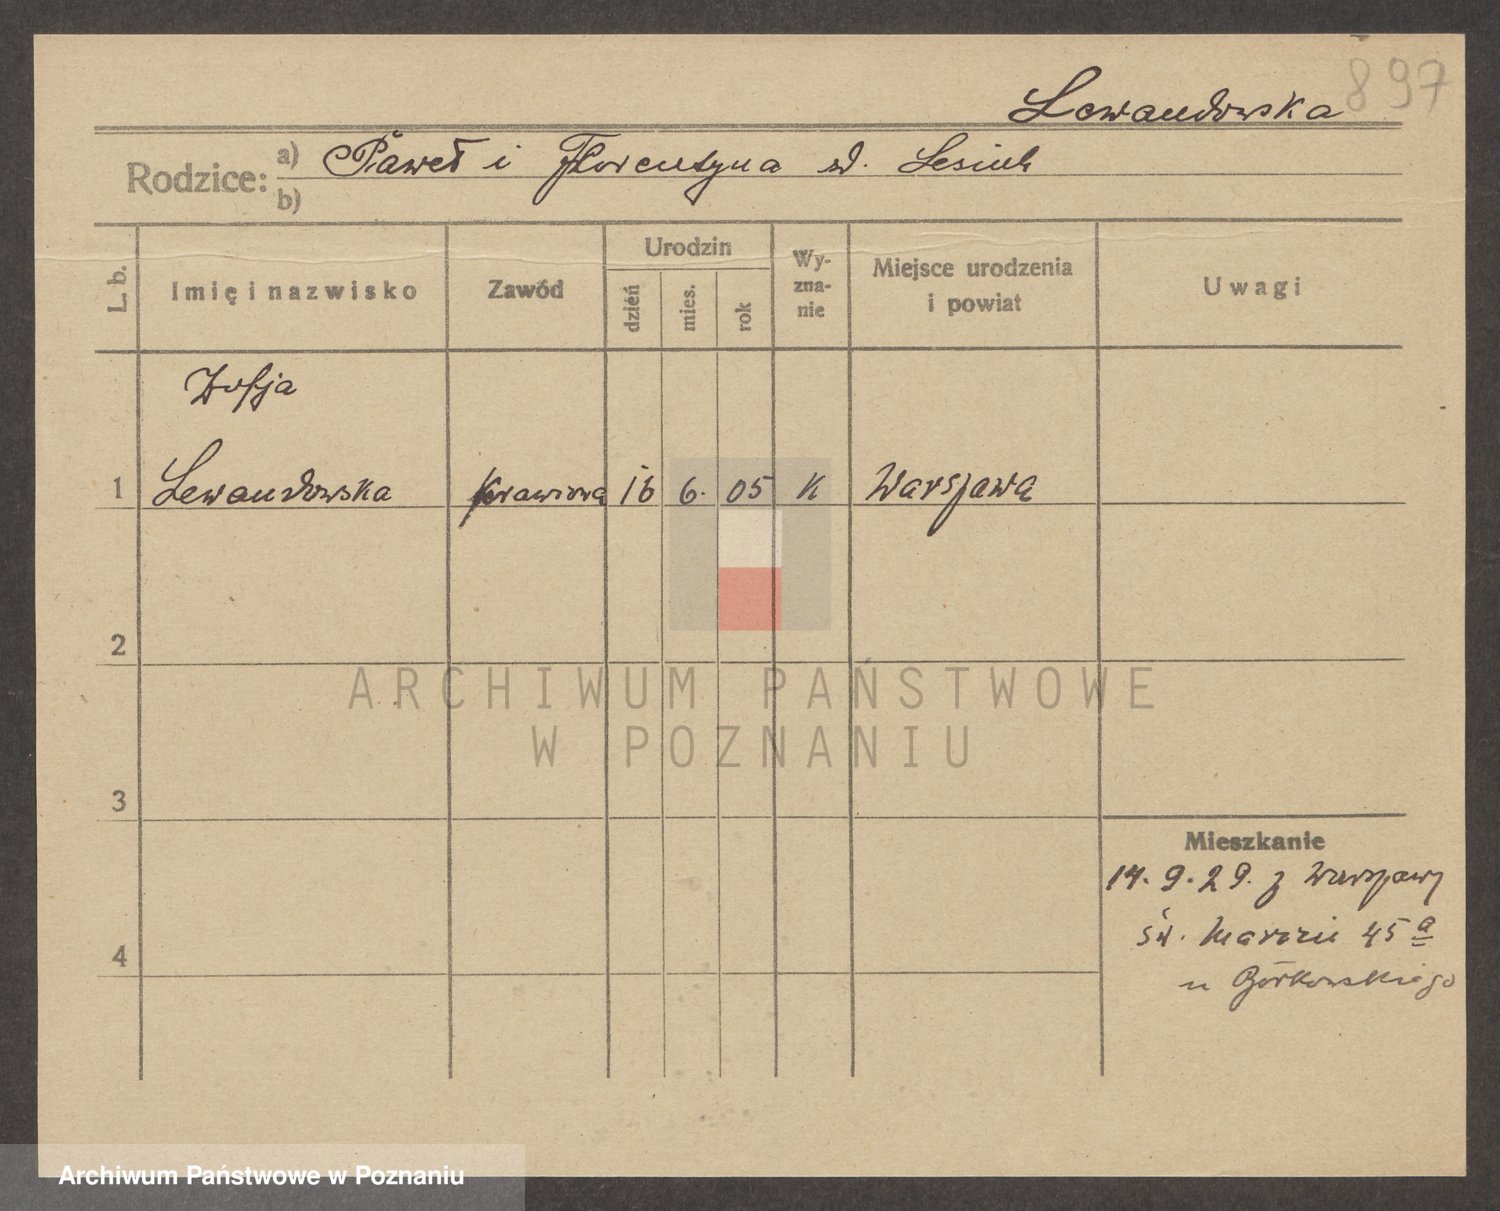 Lewandowska 897
Rodzice: a) Paweł i Florentyna d. Lesiuk
b)
L. b. Imię i nazwisko Zawód Urodzin dzień mies. rok Wy-zna-nie Miejsce urodzenia i powiat Uwagi
Zofja
1 Lewandowska krawcowa 16 6. 05 K Warszawa
2
ARCHIWUM PAŃSTWOWE
W POZNANIU
3
Mieszkanie
14. 9. 29. z Warszawy
4 św. Marcin 45 a
u Górkowskiego
Archiwum Państwowe w Poznaniu